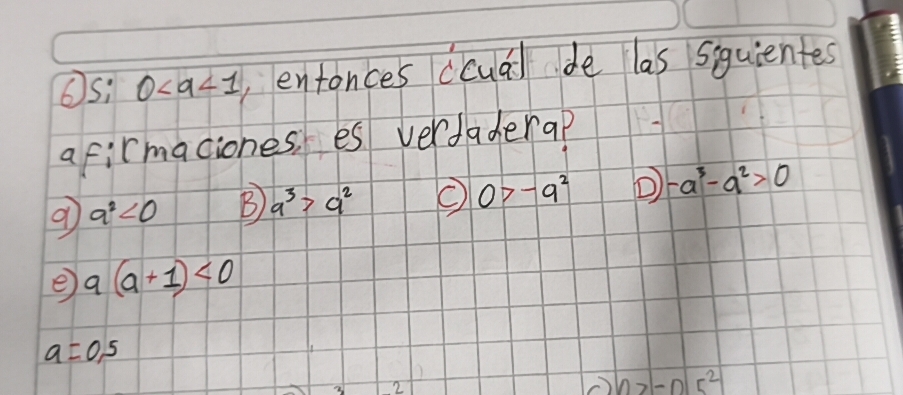 6) Si 0<a<1, entonces ¿cuál de las siguientes
afirmaciones es verdadera?
a) a²<0 B) a³>a² C) 0>-a² D) -a³-a²>0
e) a(a+1)<0
a=0,5